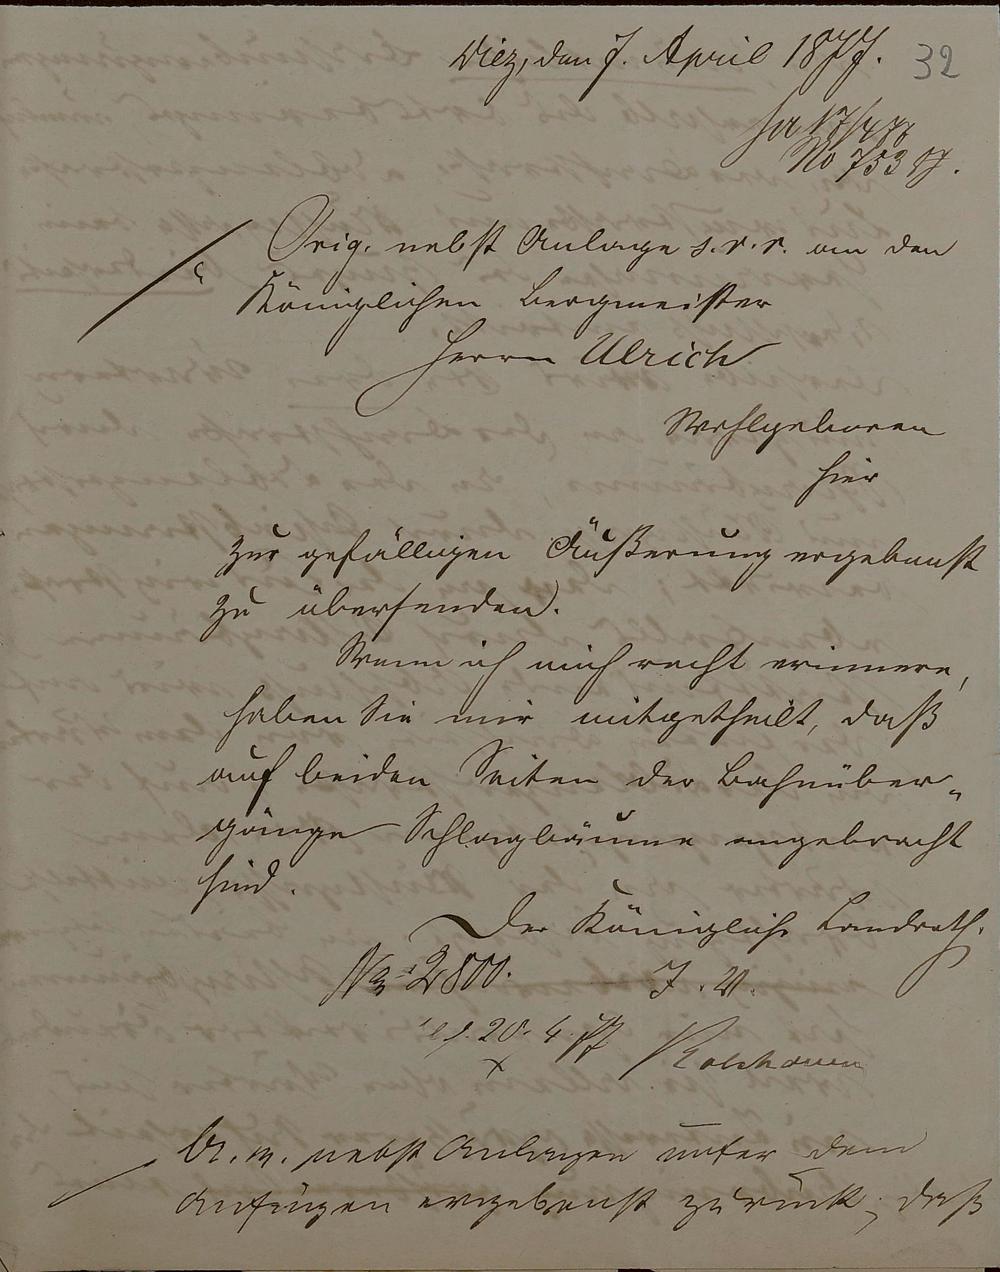 Diez, den 7. April 1877.
32
pr 17/4 77
No 753 17.
Orig. nebst Anlage s. v. r. an den
Königlichen Bergmeister
Herrn Ulrich
Wohlgeboren
hier
zur gefälligen Äußerung ergebenst
zu übersenden.
Wenn ich mich recht erinnere,
haben Sie mir mitgetheilt, daß
auf beiden Seiten der Bahnüber-
gänge Schlagbäume angebracht
sind.
Der Königliche Landrath.
No 2800. J. V.
20. 4. 77
Br. m. nebst Anlagen unter dem
Anfügen ergebenst zurück, daß